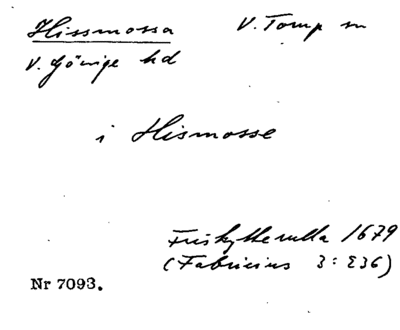 Hissmossa V. Torup sn
V. Göinge hd
i Hismosse
Friskytterulla 1679
(Fabricius 3:236)
Nr 7093.